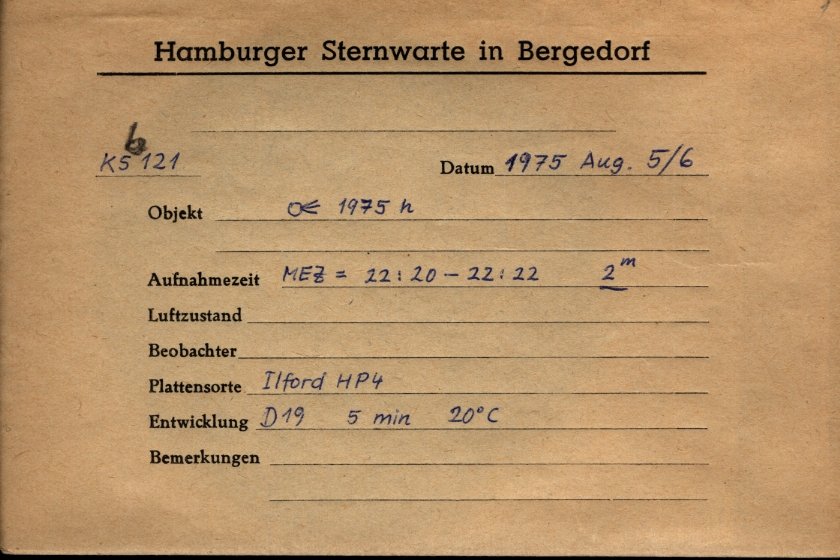 Hamburger Sternwarte in Bergedorf
b
KS 121 Datum 1975 Aug. 5/6
Objekt ☄ 1975 h
Aufnahmezeit MEZ = 22:20 – 22:22 2ᵐ
Luftzustand
Beobachter
Plattensorte Ilford HP4
Entwicklung D19 5 min 20°C
Bemerkungen